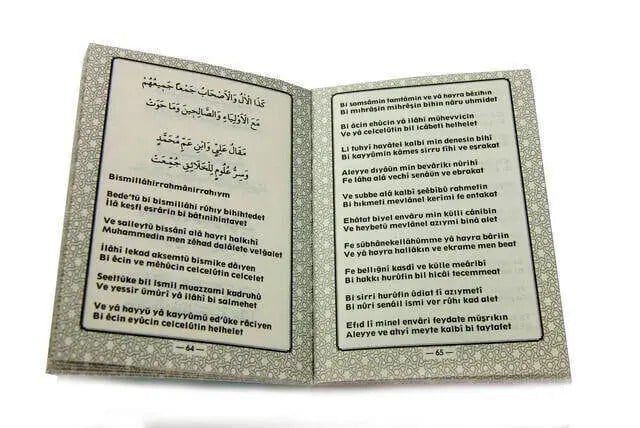 كَذَا الْاٰلُ وَالْاَصْحَابُ جَمْعًا جَمِيعُهُمْ
مَعَ الْاَوْلِيَاءِ وَالصَّالِحِينَ وَمَا حَوَتْ
مَقَالُ عَلِيٍّ وَابْنِ عَمِّ مُحَمَّدٍ
وَسِرُّ عُلُومٍ لِلْخَلَائِقِ جُمِّعَتْ
Bismillâhirrahmânirrahıym
Bede'tü bi bismillâhi rûhıy bihihtedet
İlâ keşfi esrârin bi bâtınihintavet
Ve salleytü bissânî alâ hayri halkıhî
Muhammedin men zêhad dalâlete velğalet
İlâhî lekad aksemtü bismike dâıyen
Bi êcin ve mêhûcin celcelûtin celcelet
Seelfüke bil ismil muazzami kadruhû
Ve yessir ümûrî yâ ilâhî bi salmehet
Ve yâ hayyü yâ kayyûmü ed'ûke râciyen
Bi êcin eyûcin celcelûtin helhelet
— 64 —
Bi samsâmin tamtâmin ve yâ hayra bêzihın
Bi mıhrâşin mihrêşin bihin nâru uhmidet
Bi êcin ehûcin yâ ilâhî mühevvicin
Ve yâ celcelûtin bil icâbeti helhelet
Li tuhyî hayâtel kalbi min denesin bihî
Bi kayyûmin kâmes sirru fîhi ve eşrakat
Aleyye dıyâün min bevârikı nûrihî
Fe lâha alâ vechî senâün ve ebrakat
Ve subbe alâ kalbî şeêbîbü rahmetin
Bi hıkmeti mevlânel kerîmi fe entakat
Ehâtat biyel envâru min külli cânibin
Ve heybetü mevlânel azıymi binâ alet
Fe sübhânekellâhümme yâ hayra bâriin
Ve yâ hayra hallâkın ve ekrame men beat
Fe bellığnî kasdî ve külle meârlbî
Bi hakkı hurûfin bil hicâi tecemmeat
Bi sirri hurûfin ûdiat fî azıymetî
Bi nûri senâil ismi ver rûhı kad alet
Efıd lî minel envâri feydate müşrıkın
Aleyye ve ahyi meyte kalbî bi taytafet
— 65 —